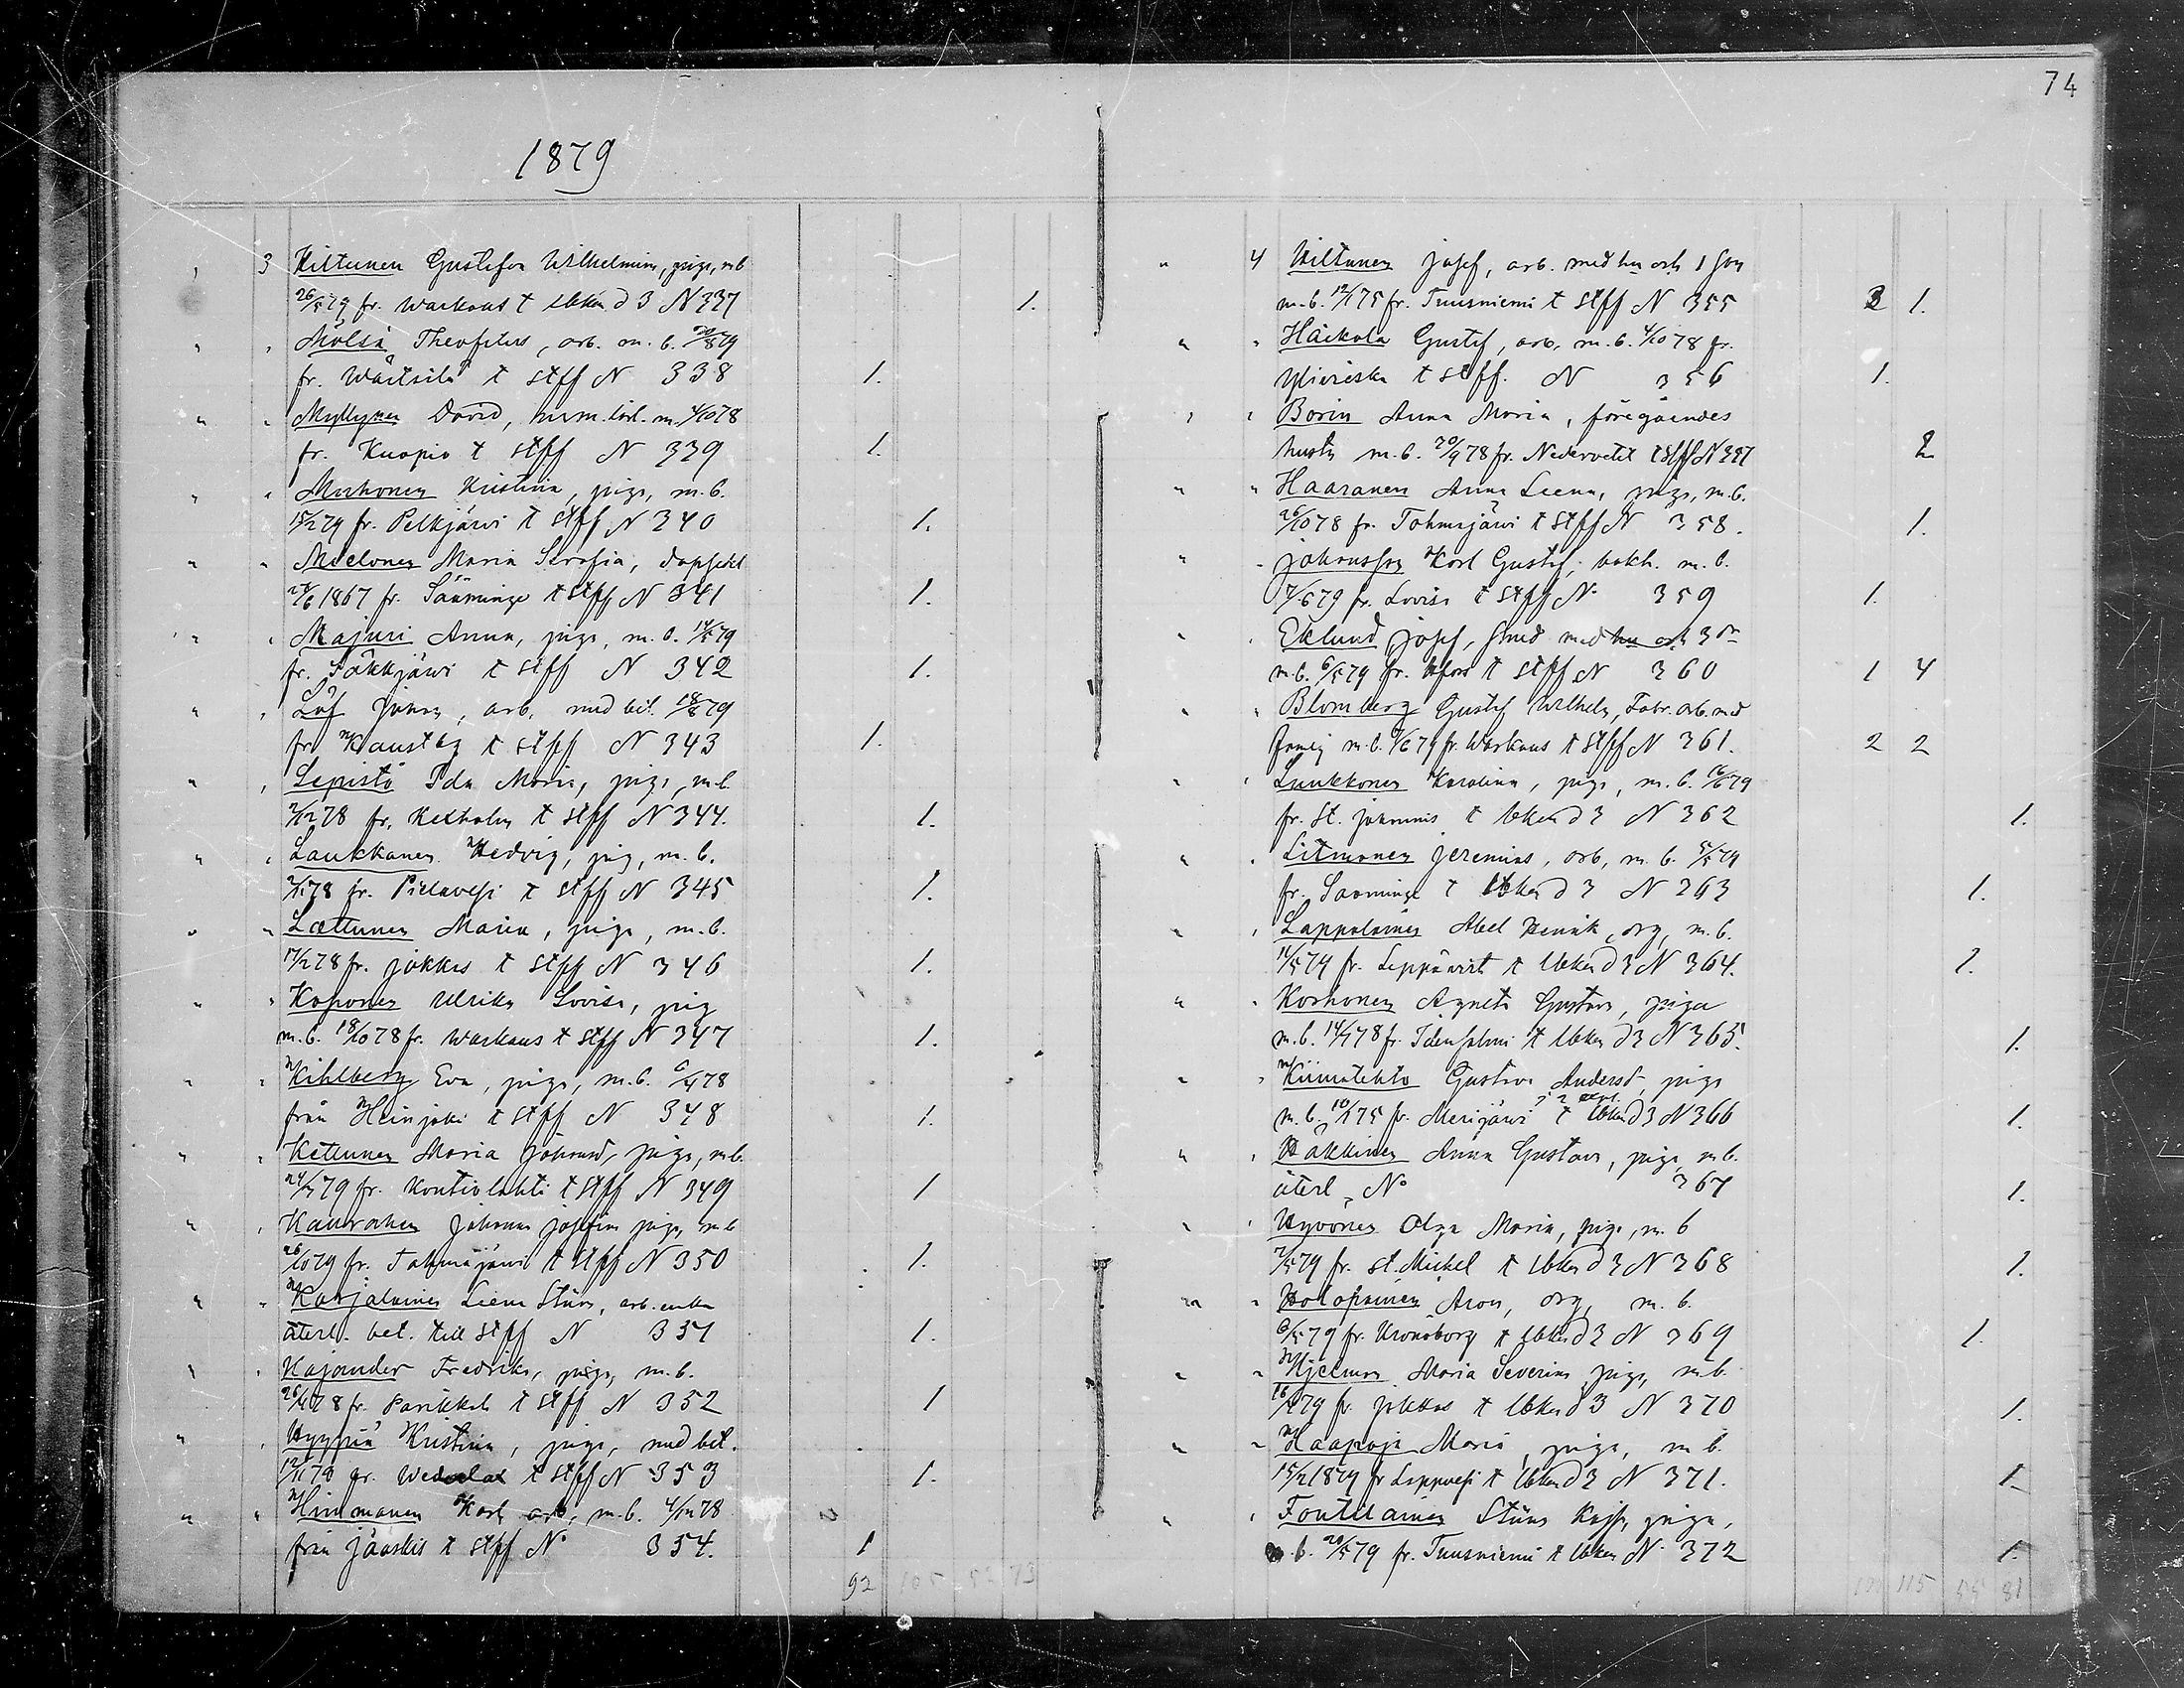 74
1879
3 Kiltunen Gustafva Wilhelmina, piga, mb
26/5 79 fr. Warkaus t Ubken d 3 N 337 1.
" " Mölsä Theofilus, arb. m. b. 79
fr. Wärtsilä t Stpf N 338 1.
" " Myllynen David, m. 4/10 78
fr. Kuopio t Stpf N 339 1.
" " Muhonen Kristina, piga, m. b.
15/2 79 fr. Pelkjärvi t Stpf N 340 1.
" " Moilonen Maria Serafia,
1867 fr. Sääminge t Stpf N 341 1.
" " Majuri Anna, piga, m. b. 79
fr. Säkkjärvi t Stpf N 342 1.
" " Löf Johan, arb. med bet. 18/8 79
fr. t Stpf N 343 1.
" " Lepistö Ida Maria, piga, m. b.
78 fr. Kexholm t Stpf N 344. 1.
" " Laukkanen Hedvig, pig, m. b.
78 fr. Pielavesi t Stpf N 345 1.
" " Lættunen Maria, piga, m. b.
17/2 78 fr. Jokkas t Stpf N 346 1.
" " Koponen Ulrika Lovisa, pig
m. b. 18/10 78 fr. Warkaus t Stpf N 347 1.
" " Kihlberg Eva, piga, m. b. 78
från Heinjoki t Stpf N 348 1.
" " Kettunen Maria Johansd, piga, mb.
79 fr. Kontiolahti t Stpf N 349 1
" " Kauranen Johanna Josefina piga, mb
26/10 79 fr. Tohmajärvi t Stpf N 350 1.
" " Karjalainen Liena Stina, arb. enka
återl. bet. till Stpf N 351 1.
" " Kajander Fredrika, piga, m. b.
78 fr. Parikkala t Stpf N 352 1
" " Hyypiä Kristina, piga, med bet.
fr. t Stpf N 353 1.
" " Hinmanen Karl arb, m. b. 78
från Jääskis t Stpf No 354. 1
92 105 52 73
" 4 Kiltunen Josef, arb. med hu och 1 son
m. b. 75 fr. Tuusniemi t Stpf N 355 3 1.
" " Häikola Gustaf, arb, m. b. 4/10 78 fr.
Ylivieska t Stpf. N 356 1.
" " Borin Anna Maria, föregåendes
hustru m. b. 20/9 78 fr. Nedervetil t Stpf N 357 2
" " Haaranen Anna Leena, piga, m. b.
26/10 78 fr. Tohmajärvi t Stpf N 358. 1.
" " Johansson Karl Gustaf, m. b.
79 fr. Lovisa t Stpf N 359 1.
" " Eklund Josef, smed med hu och 3
m. b. 6/5 79 fr. Hfors t Stpf N 360 1 4
" " Blomberg Gustaf Wilhelm, Fabr. arb. med
familj m. b. 79 fr. Warkaus t Stpf N 361. 2 2
" " Luukkonen Karolina, piga, m. b. 16/6 79
fr. St. Johannis t Ubken d 3 N 362 1.
" " Litmanen Jeremias, arb, m. b. 79
fr. Sääminge t Ubken d 3 N 363 1.
" " Lappalainen Abel Henrik, drg, m. b.
79 fr. Leppävirta t Ubken d 3 N 364. 1.
" " Korhonen Agneta Gustava, piga
m. b. 78 fr. Idensalmi t Ubken d 3 N 365. 1.
" " Kiimalehto Gustava Andersd, piga
m. b. 75 fr. Merijärvi t Ubken d 3 N 366 1.
" " Häkkinen Anna Gustava, piga, mb.
återl. No 367 1.
" " Hyvönen Olga Maria, piga, m. b
79 fr. St. Michel t Ubken d 3 N 368 1.
" " Holopainen Aron, drg, m. b.
79 fr. Kronoborg t Ubken d 3 N 369 1.
" " Hjelman Maria Severina piga, m. b.
79 fr. Jokkas t Ubken d 3 N 370 1.
" " Haapoja Maria, piga, m b.
15/2 1879 fr Lappvesi t Ubken d 3 N 371. 1.
" " Fontelainen Stina Kajsa, piga,
m. b. 79 fr. Tuusniemi t Ubken N 372 1.
115 55 81